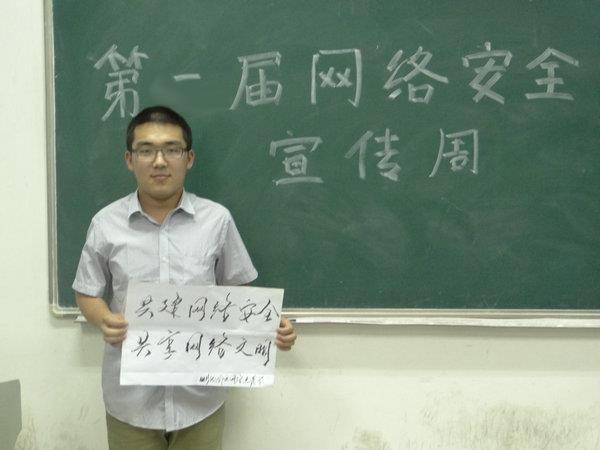 第一届网络安全
宣传周
共建网络安全
共享网络文明